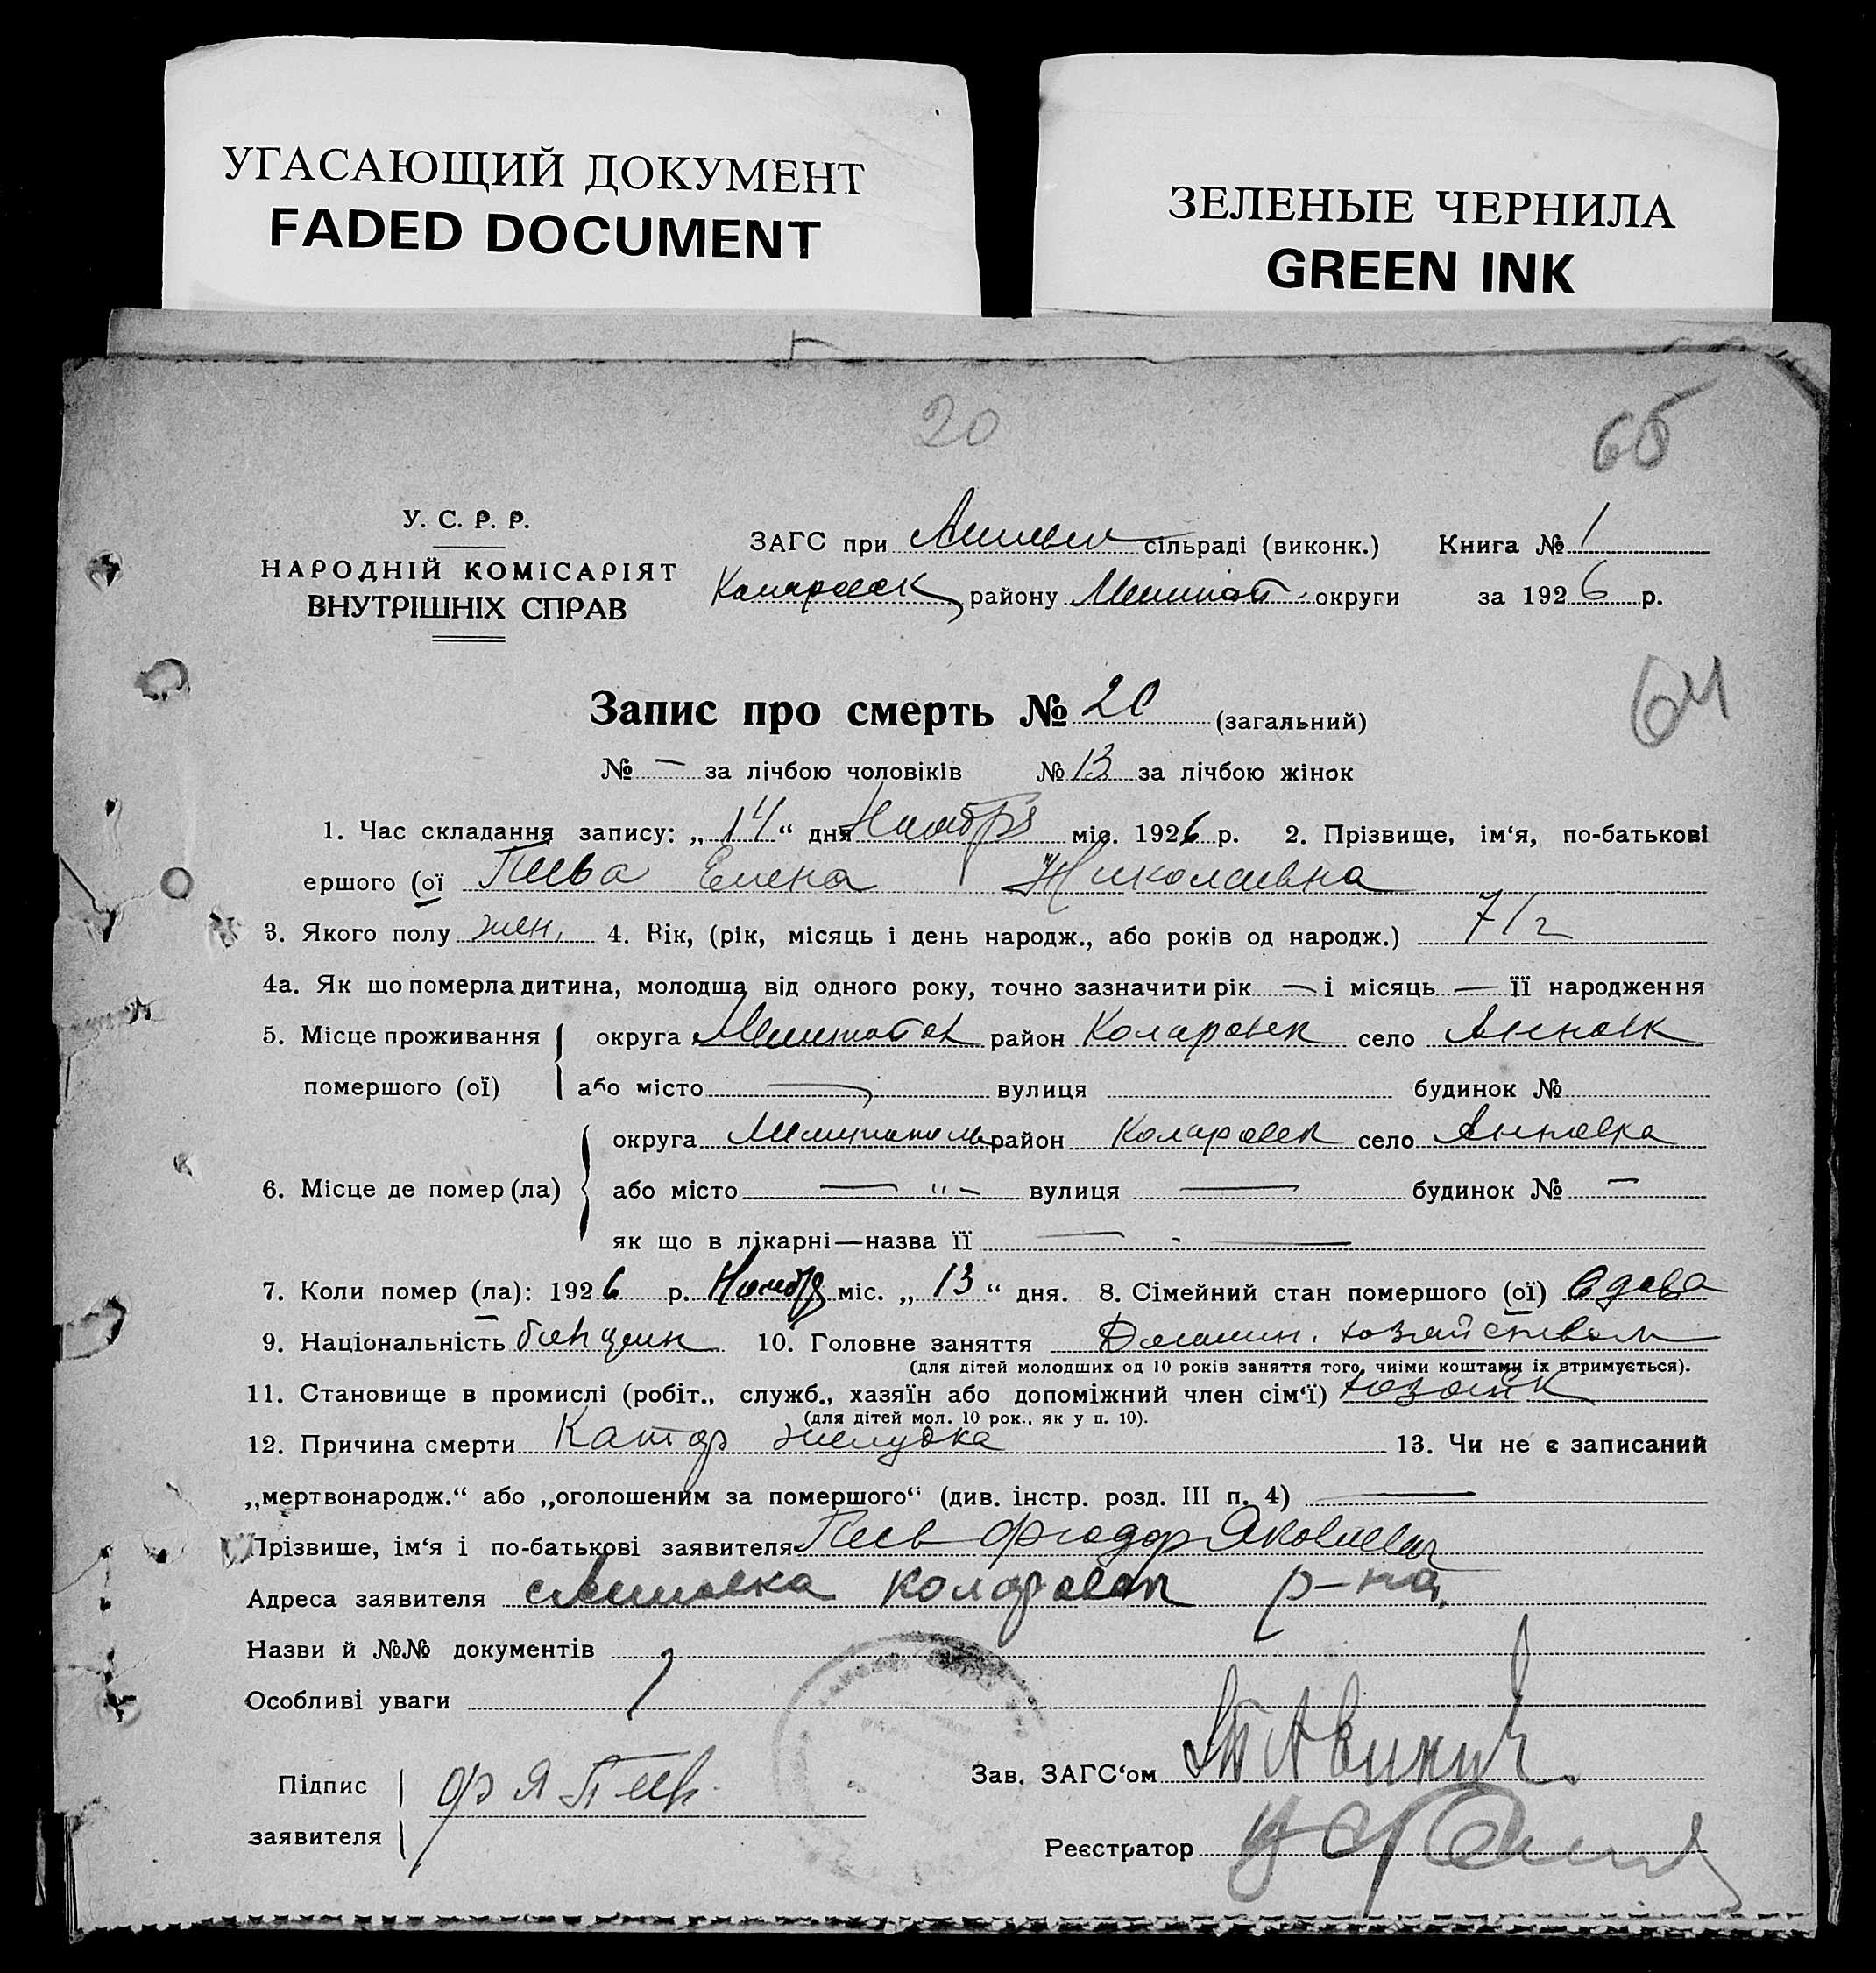 УГАСАЮЩИЙ ДОКУМЕНТ
FADED DOCUMENT
ЗЕЛЕНЫЕ ЧЕРНИЛА
GREEN INK
20
65
У. С. Р. Р.
НАРОДНІЙ КОМІСАРІЯТ
ВНУТРІШНІХ СПРАВ
ЗАГС при сільраді (виконк.) Книга № 1
району округи за 1926 р.
64
Запис про смерть № 20 (загальний)
№ — за лічбою чоловіків № 13 за лічбою жінок
1. Час складання запису: „14“ дня Ноября міс. 1926 р. 2. Прізвище, ім‘я, по-батькові
ершого (ої Елена Николаевна
3. Якого полу жен. 4. Вік, (рік, місяць і день народж., або років од народж.) 71 г
4а. Як що померла дитина, молодша від одного року, точно зазначити рік — і місяць — її народження
5. Місце проживання округа район Коларовск село
помершого (ої) або місто — вулиця будинок №
округа район Коларовск село Анновка
6. Місце де помер (ла) або місто — " – вулиця — будинок № —
як що в лікарні—назва її — - —
7. Коли помер (ла): 1926 р. Ноября міс. „13“ дня. 8. Сімейний стан помершого (ої) вдова
9. Національність 10. Головне заняття Домашн. хозяйством
(для дітей молодших од 10 років заняття того, чиїми коштами їх втримується).
11. Становище в промислі (робіт., служб., хазяїн або допоміжний член сім‘ї)
(для дітей мол. 10 рок., як у п. 10).
12. Причина смерти Катар желудка 13. Чи не є записаний
„мертвонародж.“ або „оголошеним за помершого“ (див. інстр. розд. III п. 4) —
Прізвише, ім‘я і по-батькові заявителя Фёдор Яковлевич
Адреса заявителя р-на.
Назви й №№ документів
Особливі уваги
Зав. ЗАГС‘ом
Підпис
заявителя Ф Я
Реєстратор